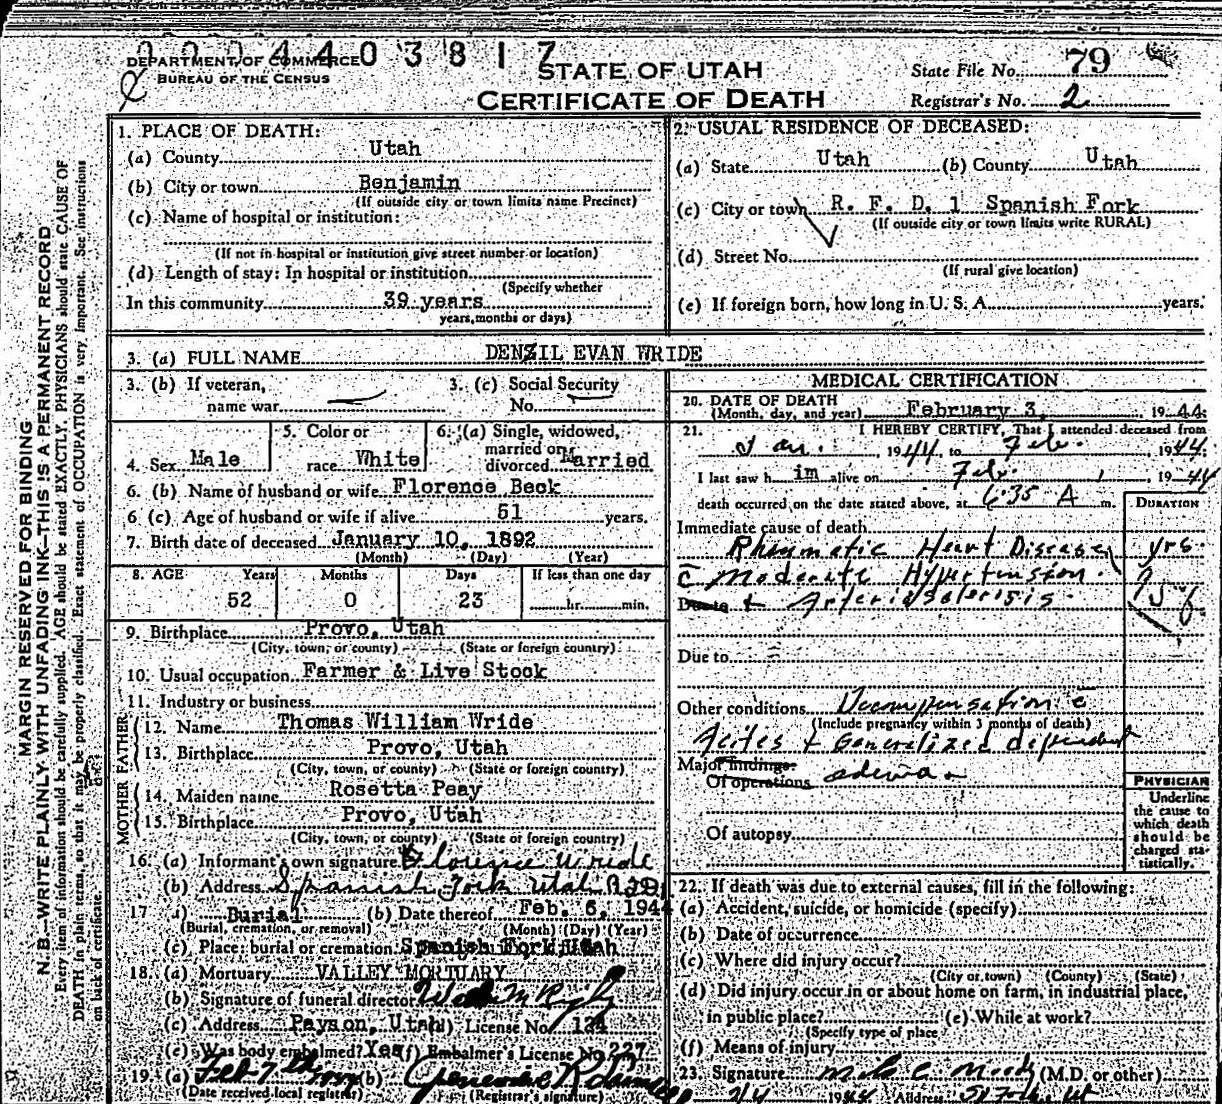 DEPARTMENT OF COMMERCE
BUREAU OF THE CENSUS
STATE OF UTAH
CERTIFICATE OF DEATH
State File No. 79
Registrar's No. 2
MARGIN RESERVED FOR BINDING
N.B.—WRITE PLAINLY WITH UNFADING INK—THIS IS A PERMANENT RECORD
Every item of information should be carefully supplied. AGE should be stated EXACTLY. PHYSICIANS should state CAUSE OF
DEATH in plain terms, so that it may be properly classified. Exact statement of OCCUPATION is very important. See instructions
on back of certificate.
1. PLACE OF DEATH:
(a) County Utah
(b) City or town Benjamin
(If outside city or town limits name Precinct)
(c) Name of hospital or institution:
(If not in hospital or institution give street number or location)
(d) Length of stay: In hospital or institution
(Specify whether
In this community 39 years
years, months or days)
2. USUAL RESIDENCE OF DECEASED:
(a) State Utah (b) County Utah
(c) City or town R. F. D. 1 Spanish Fork
(If outside city or town limits write RURAL)
(d) Street No.
(If rural give location)
(e) If foreign born, how long in U. S. A. years.
3. (a) FULL NAME DENZIL EVAN WRIDE
3. (b) If veteran,
name war
3. (c) Social Security
No.
4. Sex Male
5. Color or
race White
6. (a) Single, widowed,
married or
divorced Married
6. (b) Name of husband or wife Florence Beck
6 (c) Age of husband or wife if alive 51 years.
7. Birth date of deceased January 10, 1892
(Month) (Day) (Year)
8. AGE Years Months Days If less than one day
52 0 23 hr. min.
9. Birthplace Provo, Utah
(City, town, or county) (State or foreign country)
10. Usual occupation Farmer & Live Stock
11. Industry or business
FATHER
12. Name Thomas William Wride
13. Birthplace Provo, Utah
(City, town, or county) (State or foreign country)
MOTHER
14. Maiden name Rosetta Peay
15. Birthplace Provo, Utah
(City, town, or county) (State or foreign country)
16. (a) Informant's own signature Florence Wride
(b) Address Spanish Fork Utah
17 a) Burial (b) Date thereof Feb. 6, 1944
(Burial, cremation, or removal) (Month) (Day) (Year)
(c) Place: burial or cremation Spanish Fork Utah
18. (a) Mortuary VALLEY MORTUARY
(b) Signature of funeral director
(c) Address Payson, Utah (d) License No. 124
(e) Was body embalmed? Yes (f) Embalmer's License No. 227
19. (a) Feb 7th 1944 (b)
(Date received local registrar) (Registrar's signature)
MEDICAL CERTIFICATION
20. DATE OF DEATH
(Month, day, and year) February 3, 1944
21. I HEREBY CERTIFY, That I attended deceased from
Jan. 1944, to Feb. 1944;
I last saw h im alive on Feb. 1944
death occurred on the date stated above, at 6:35 A m.
DURATION
Immediate cause of death
Rheumatic Heart Disease yrs.
c̄ Moderate Hypertension.
Due to + Arteriosclerosis.
Due to
Other conditions Decompensation c̄
(Include pregnancy within 3 months of death)
Acites + Generalized dependent
Major findings:
Of operations edema
Of autopsy
PHYSICIAN
Underline
the cause to
which death
should be
charged sta-
tistically.
22. If death was due to external causes, fill in the following:
(a) Accident, suicide, or homicide (specify)
(b) Date of occurrence
(c) Where did injury occur?
(City or town) (County) (State)
(d) Did injury occur in or about home on farm, in industrial place,
in public place? (e) While at work?
(Specify type of place
(f) Means of injury
23. Signature Milo C Moody (M.D. or other)
2/4 1944 Address